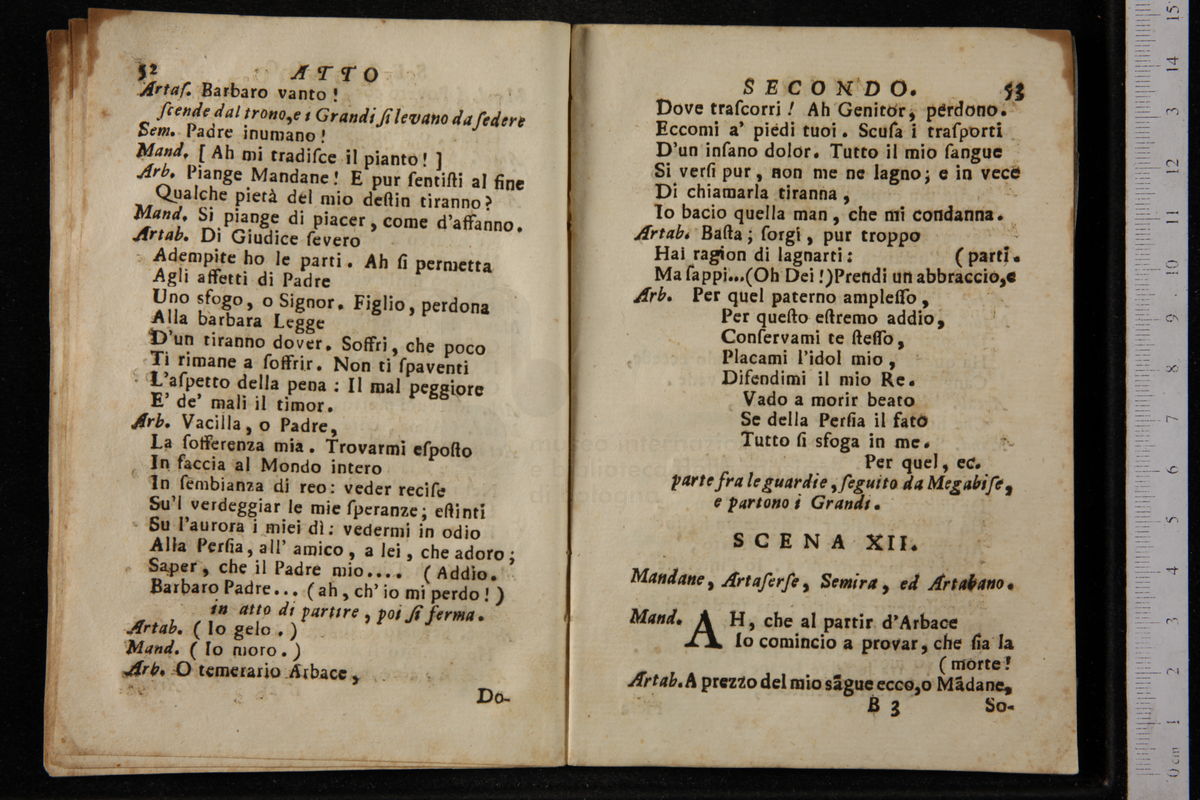 52 ATTO
Artaſ. Barbaro vanto !
ſcende dal trono, e i Grandi ſi levano da ſedere
Sem. Padre inumano !
Mand. [ Ah mi tradiſce il pianto ! ]
Arb. Piange Mandane ! E pur ſentiſti al fine
Qualche pietà del mio deſtin tiranno ?
Mand. Si piange di piacer , come d'affanno.
Artab. Di Giudice ſevero
Adempite ho le parti . Ah ſi permetta
Agli affetti di Padre
Uno sfogo , o Signor . Figlio , perdona
Alla barbara Legge
D'un tiranno dover . Soffri , che poco
Ti rimane a ſoffrir . Non ti ſpaventi
L'aſpetto della pena : Il mal peggiore
E' de' mali il timor .
Arb. Vacilla , o Padre,
La ſofferenza mia . Trovarmi eſpoſto
In faccia al Mondo intero
In ſembianza di reo : veder reciſe
Su'l verdeggiar le mie ſperanze ; eſtinti
Su l'aurora i miei dì : vedermi in odio
Alla Perſia , all' amico , a lei , che adoro ;
Saper , che il Padre mio.... ( Addio .
Barbaro Padre... ( ah , ch' io mi perdo ! )
in atto di partire , poi ſi ferma .
Artab. ( Io gelo . )
Mand. ( Io moro . )
Arb. O temerario Arbace ,
Do-
SECONDO. 53
Dove traſcorri ! Ah Genitor , perdono .
Eccomi a' piedi tuoi . Scuſa i traſporti
D'un inſano dolor . Tutto il mio ſangue
Si verſi pur , non me ne lagno ; e in vece
Di chiamarla tiranna ,
Io bacio quella man , che mi condanna .
Artab. Baſta ; ſorgi , pur troppo
Hai ragion di lagnarti : ( parti .
Ma ſappi...(Oh Dei !)Prendi un abbraccio,e
Arb. Per quel paterno ampleſſo ,
Per queſto eſtremo addio ,
Conſervami te ſteſſo ,
Placami l'idol mio ,
Difendimi il mio Re .
Vado a morir beato
Se della Perſia il fato
Tutto ſi sfoga in me .
Per quel , ec.
parte fra le guardie , ſeguito da Megabiſe ,
e partono i Grandi .
SCENA XII.
Mandane , Artaſerſe , Semira , ed Artabano .
Mand. AH, che al partir d'Arbace
Io comincio a provar , che ſia la
( morte !
Artab. A prezzo del mio sāgue ecco,o Mādane,
B 3 So-
museo internazionale
e biblioteca della musica
di bologna